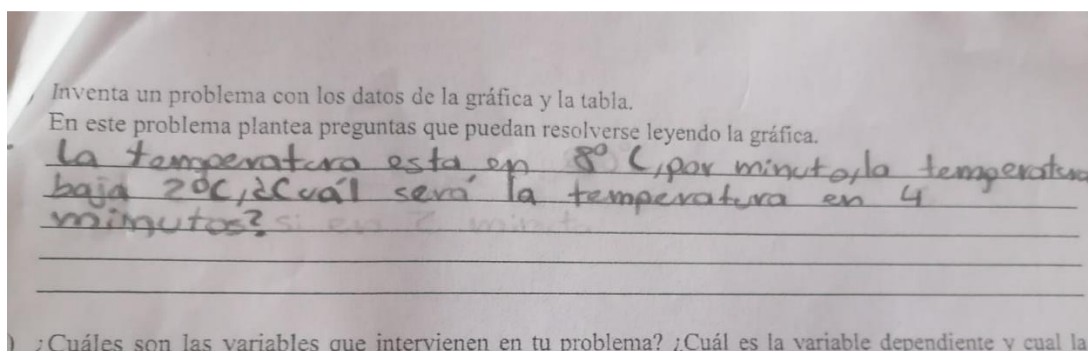 Inventa un problema con los datos de la gráfica y la tabla.
En este problema plantea preguntas que puedan resolverse leyendo la gráfica.
la temperatura esta en 8° C, por minuto, la temperatura
baja 2°C, ¿Cuál será la temperatura en 4
minutos? si en 2 minut
) ¿Cuáles son las variables que intervienen en tu problema? ¿Cuál es la variable dependiente y cual la